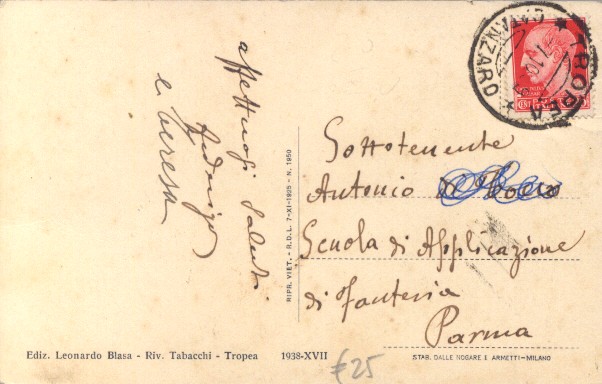 affettuosi saluti
Federigo
e Teresa
RIPR. VIET. - R.D.L. 7-XI-1925 - N. 1950
TROPEA
CATANZARO
Sottotenente
Antonio
Scuola di Applicazione
di Fanteria
Parma
Ediz. Leonardo Blasa - Riv. Tabacchi - Tropea 1938-XVII
STAB. DALLE NOGARE E ARMETTI-MILANO
€25